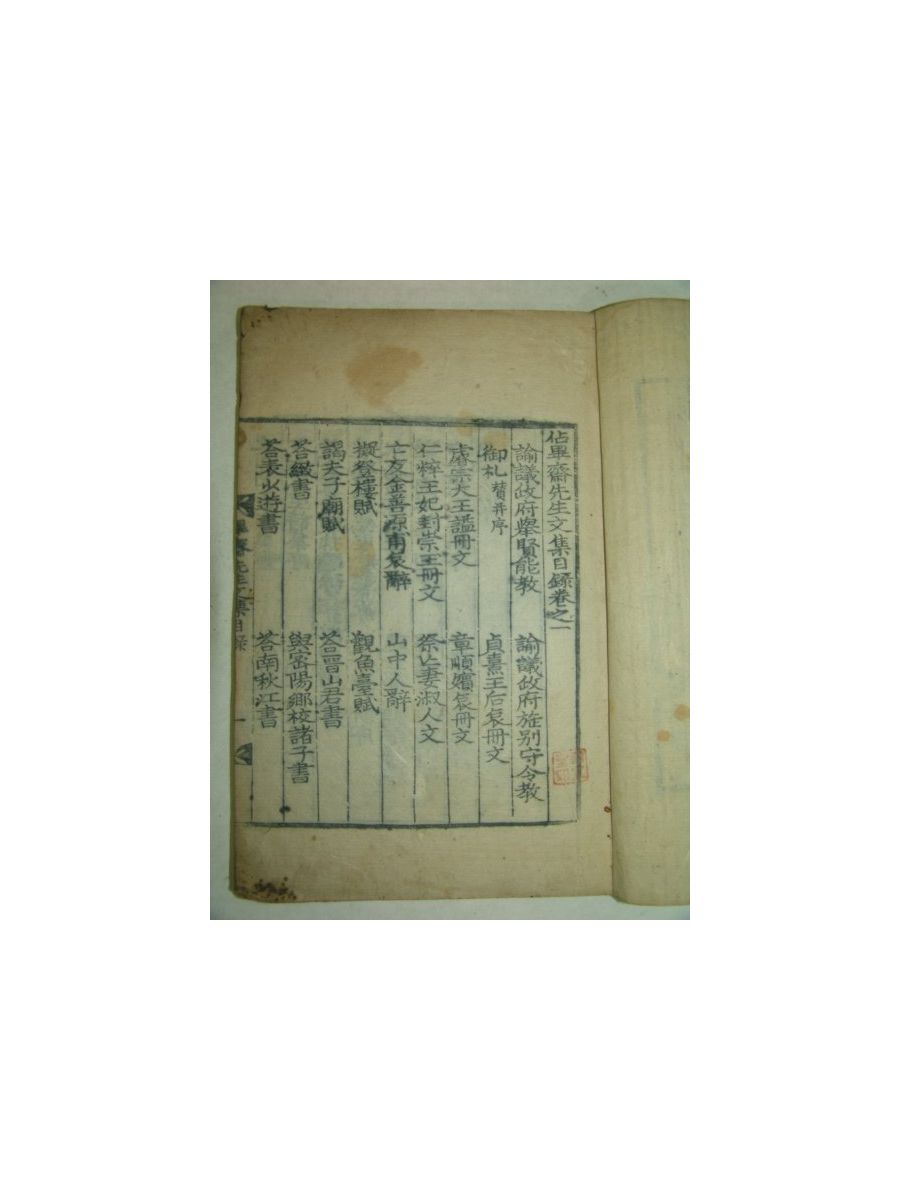 佔畢齋先生文集目錄卷之一
諭議政府舉賢能教 諭議政府旌別守令教
御札賛并序 貞熹王后哀冊文
睿宗大王謚冊文 章順嬪哀冊文
仁粹王妃封崇玉冊文 祭亡妻淑人文
亡友金善源甫哀辭 山中人辭
擬登樓賦 觀魚臺賦
謁夫子廟賦 荅晉山君書
荅緻書 與密陽鄉校諸子書
荅表少遊書 荅南秋江書
先生文集目錄 一